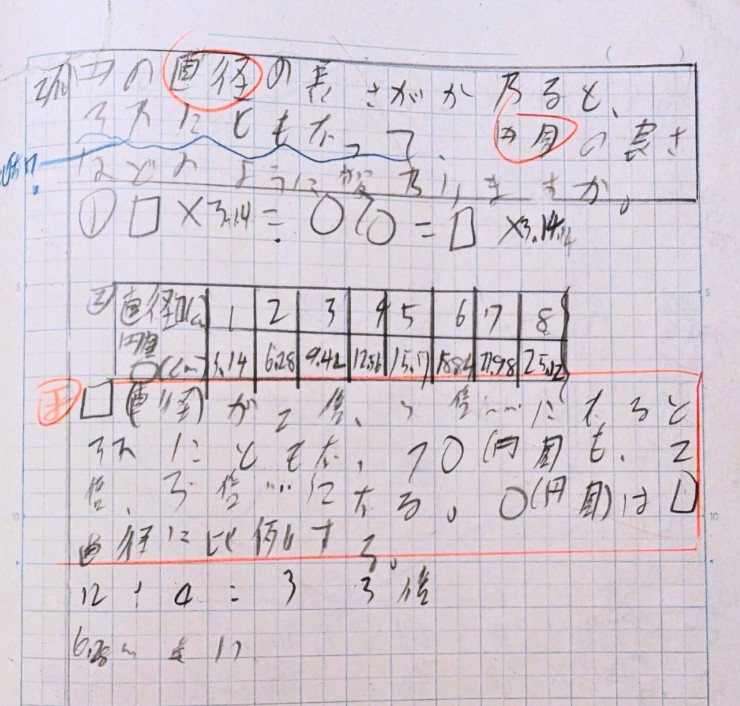 円の直径の長さがかわると、
それにともなって、円周の長さ
はどのように変わりますか。
① □×3.14=○ ○=□×3.14
② 直径□(cm) 1 2 3 4 5 6 7 8
円周○(cm) 3.14 6.28 9.42 12.56 15.7 18.84 21.98 25.12
□(直径)が2倍、3倍……になると
それにともなって○(円周)も、2
倍、3倍…になる。○(円周)は□
直径に比例する。
12÷4=3 3倍
6.28